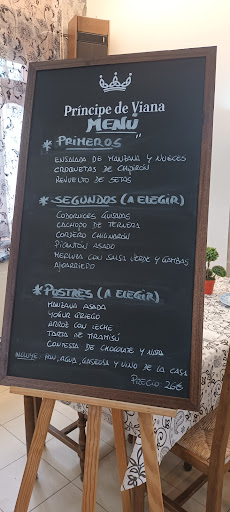 Príncipe de Viana
MENÚ
* PRIMEROS
ENSALADA DE MANZANA Y NUECES
CROQUETAS DE CHIPIRÓN
REVUELTO DE SETAS
* SEGUNDOS (A ELEGIR)
CODORNICES GUISADAS
CACHOPO DE TERNERA
CORDERO CHILINDRÓN
PICANTÓN ASADO
MERLUZA CON SALSA VERDE Y GAMBAS
AJOARRIERO
* POSTRES (A ELEGIR)
MANZANA ASADA
YOGUR GRIEGO
ARROZ CON LECHE
TARTA DE TIRAMISÚ
CONTESSA DE CHOCOLATE Y NATA
INCLUYE: PAN, AGUA, GASEOSA Y VINO DE LA CASA
PRECIO 26€